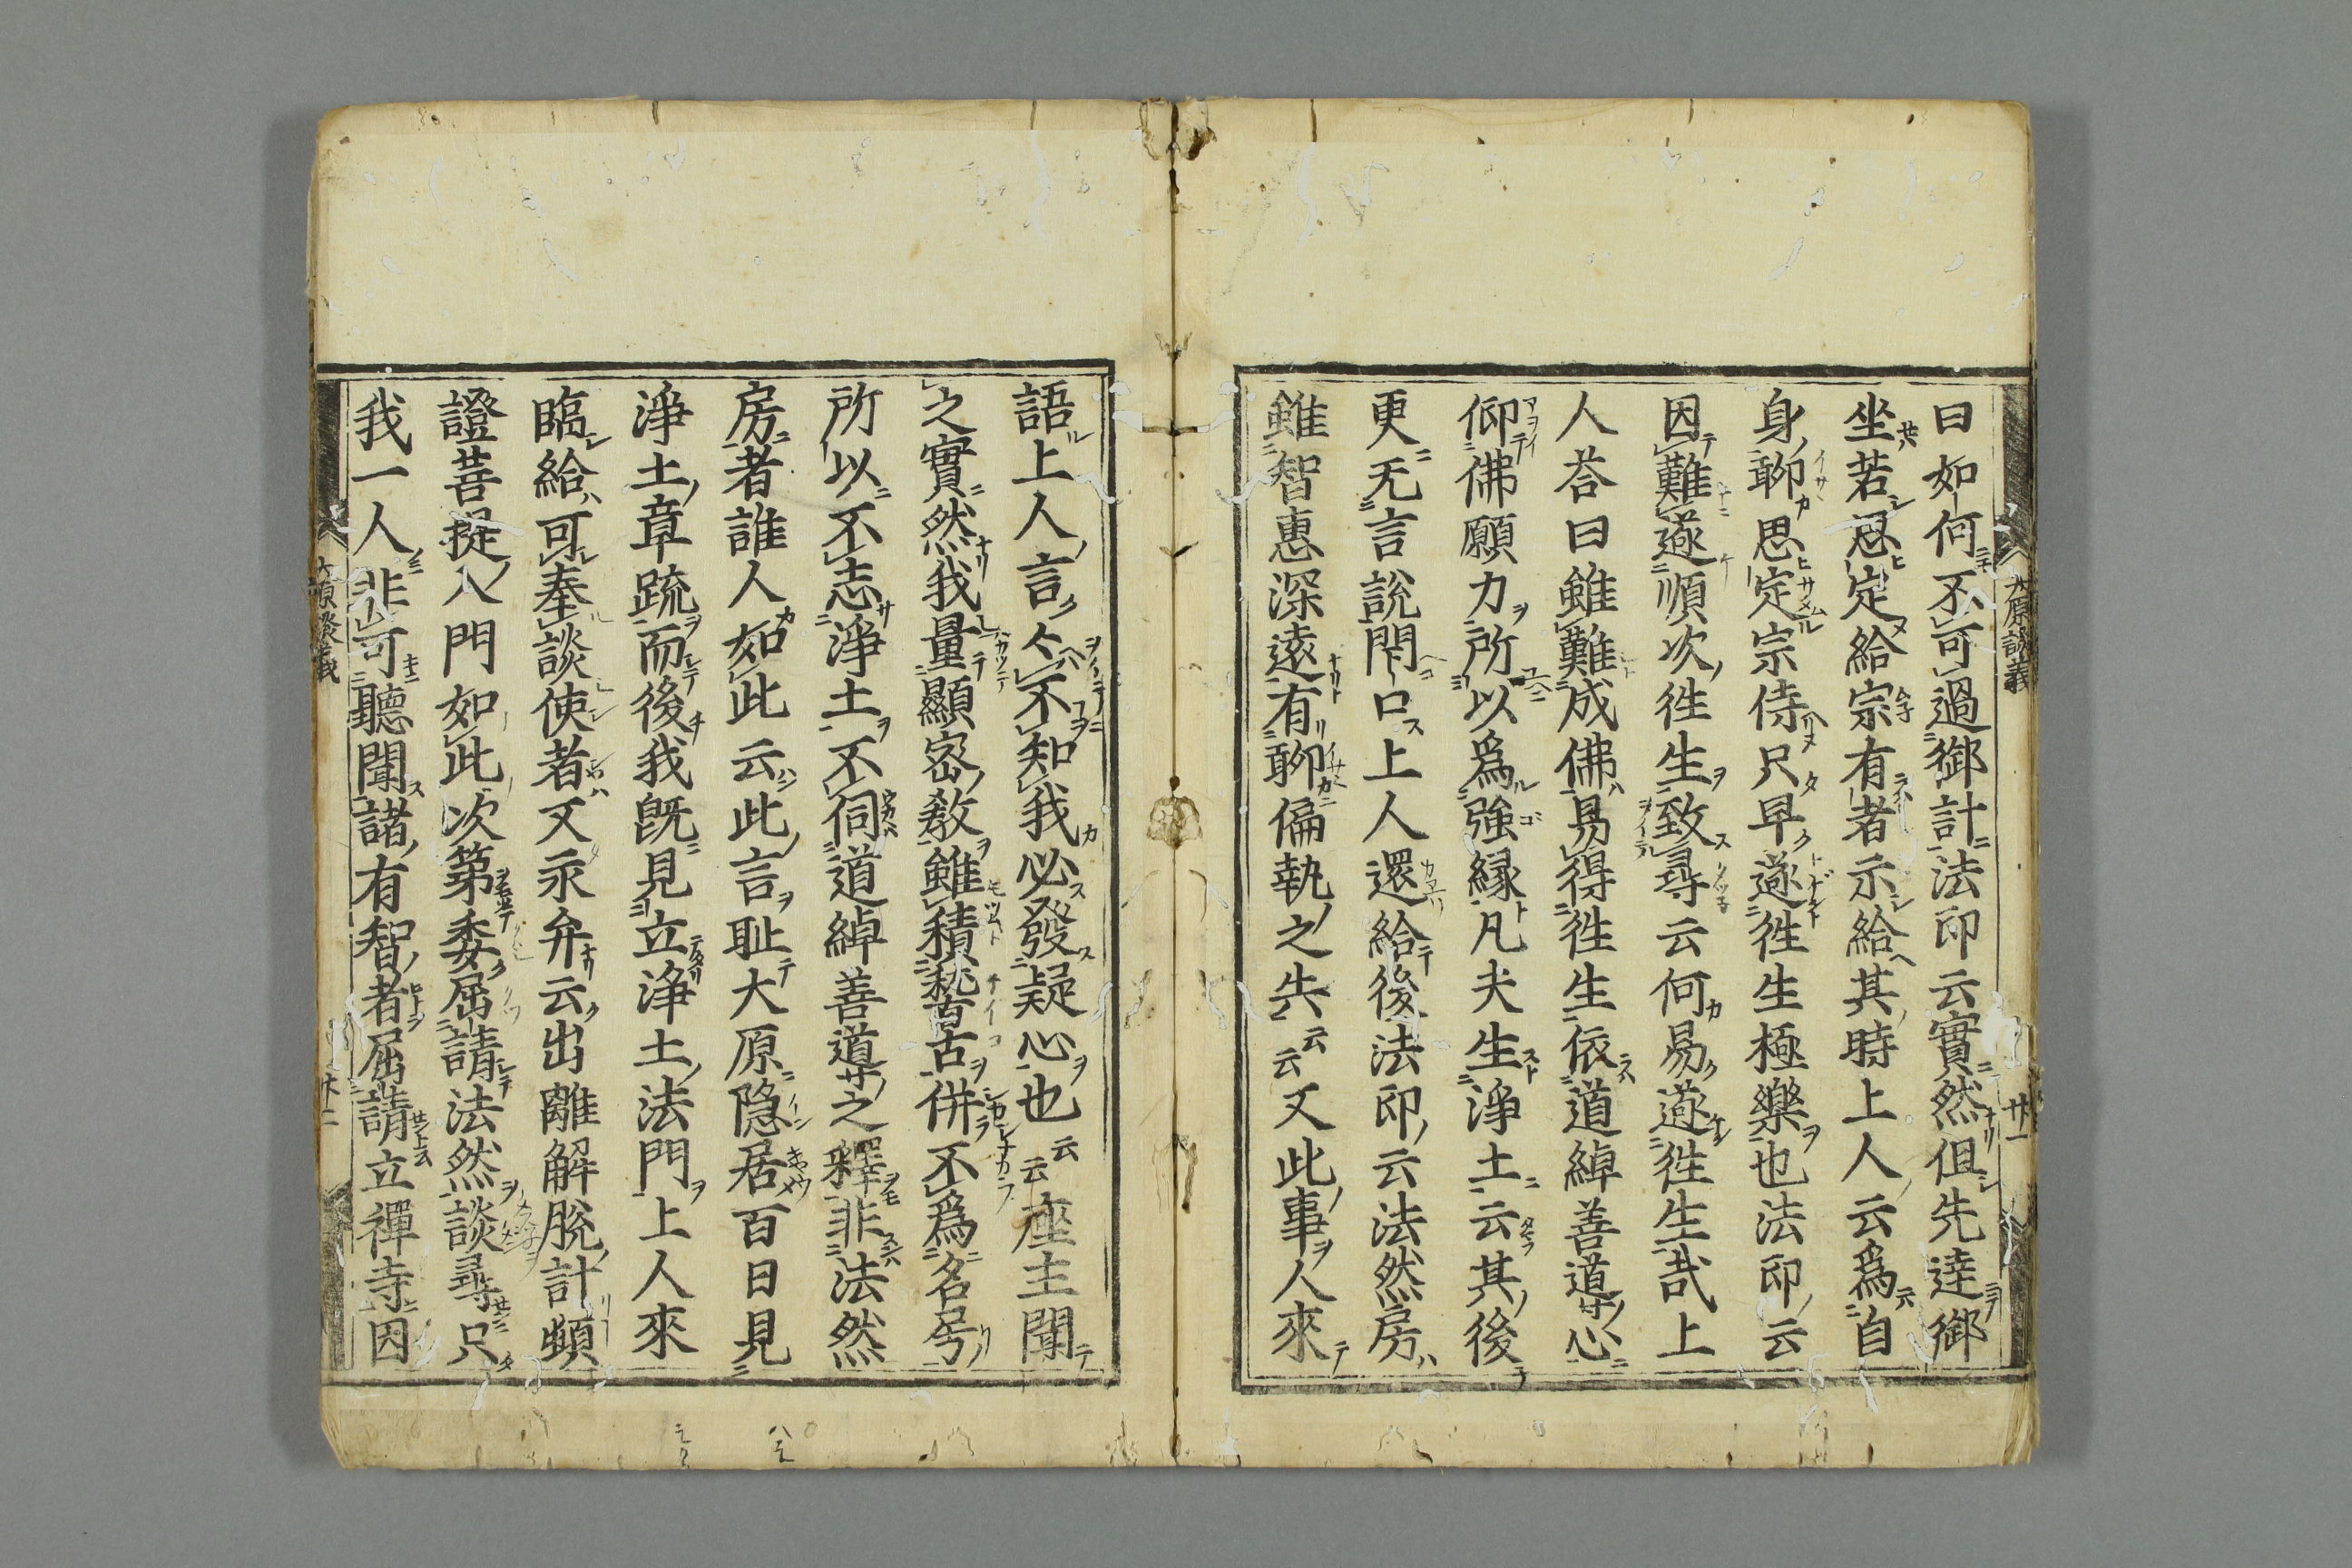 曰如何不可過御計法印云實然但先達御
坐若思定給宗有者示給其時上人云爲自
身聊思定宗侍只早遂徃生極樂也法印云
因難遂順次徃生致尋云何易遂徃生哉上
人荅曰雖難成佛易得徃生依道綽善道𦬇心
仰佛願力所以爲強縁凡夫生淨土云其後
更无言說閇口上人還給後法印云法然房
雖智惠深遠有聊偏執之失云云又此事人來
語上人言𫝆不知我必發疑心也云云座主聞
之實然我量顯宻教雖積稽古併不爲名号
所以不志淨土不伺道綽善道𦬇之釋非法然
房者誰人如此云此言耻大原隐居百日見
淨土章疏而後我既見立淨土法門上人來
臨給可奉談使者又永弁云出離解脫計頻
證菩提入門如此次第委屈請法然談尋只
我一人非可聽聞諸有智者屈請立禪寺因
大原談義
廿一
廿二